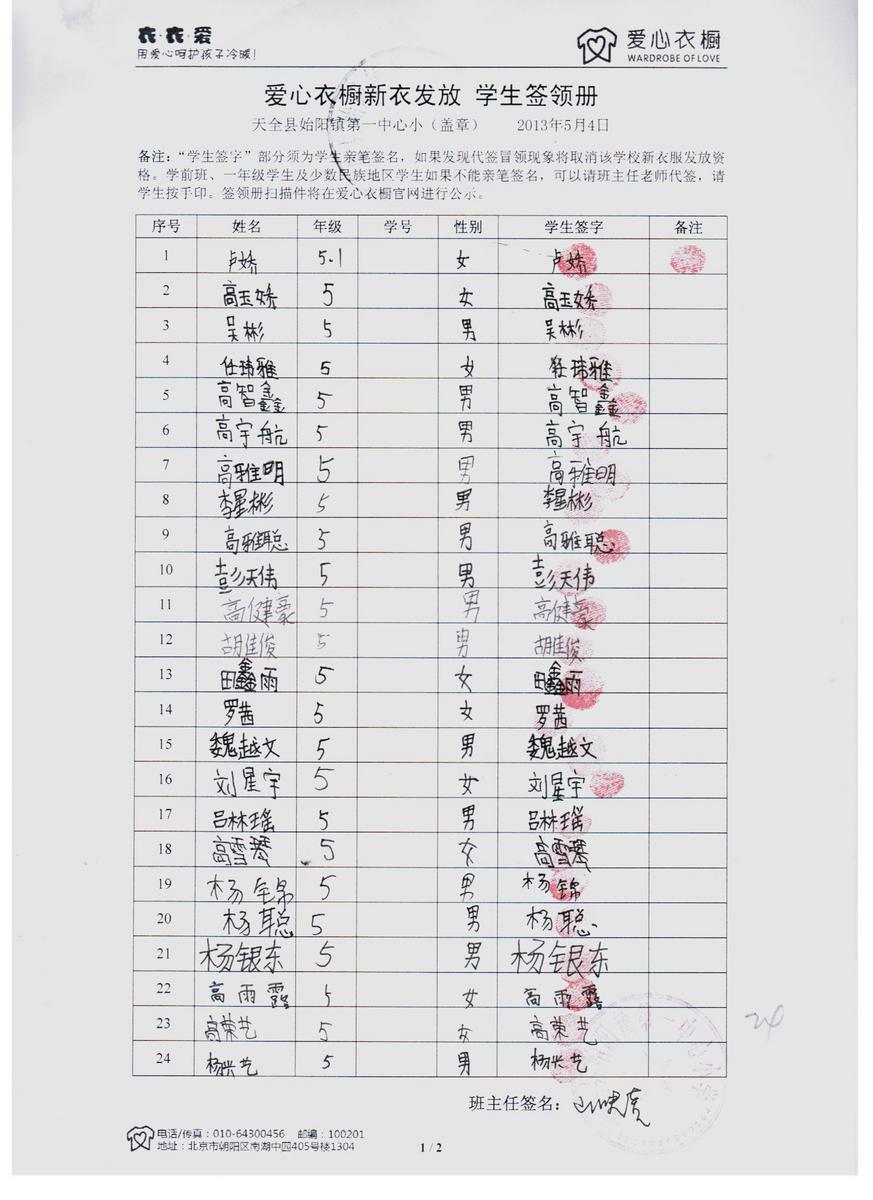 衣·衣·爱
用爱心呵护孩子冷暖!
爱心衣橱
WARDROBE OF LOVE
爱心衣橱新衣发放 学生签领册
天全县始阳镇第一中心小（盖章） 2013年5月4日
备注：“学生签字”部分须为学生亲笔签名，如果发现代签冒领现象将取消该学校新衣服发放资
格。学前班、一年级学生及少数民族地区学生如果不能亲笔签名，可以请班主任老师代签，请
学生按手印。签领册扫描件将在爱心衣橱官网进行公示。
序号 姓名 年级 学号 性别 学生签字 备注
1 卢娇 5.1 女 卢娇
2 高玉娇 5 女 高玉娇
3 吴彬 5 男 吴彬
4 任玮雅 5 女 任玮雅
5 高智鑫 5 男 高智鑫
6 高宇航 5 男 高宇航
7 高雅明 5 男 高雅明
8 李星彬 5 男 李星彬
9 高雅聪 5 男 高雅聪
10 彭天伟 5 男 彭天伟
11 高健豪 5 男 高健豪
12 胡佳俊 5 男 胡佳俊
13 田鑫雨 5 女 田鑫雨
14 罗茜 5 女 罗茜
15 魏越文 5 男 魏越文
16 刘星宇 5 女 刘星宇
17 吕林瑶 5 男 吕林瑶
18 高雪琴 5 女 高雪琴
19 杨锦 5 男 杨锦
20 杨聪 5 男 杨聪
21 杨银东 5 男 杨银东
22 高雨露 5 女 高雨露
23 高荣艺 5 女 高荣艺
24 杨兴艺 5 男 杨兴艺
24
班主任签名：
电话/传真：010-64300456 邮编：100201
地址：北京市朝阳区南湖中园405号楼1304
1 / 2